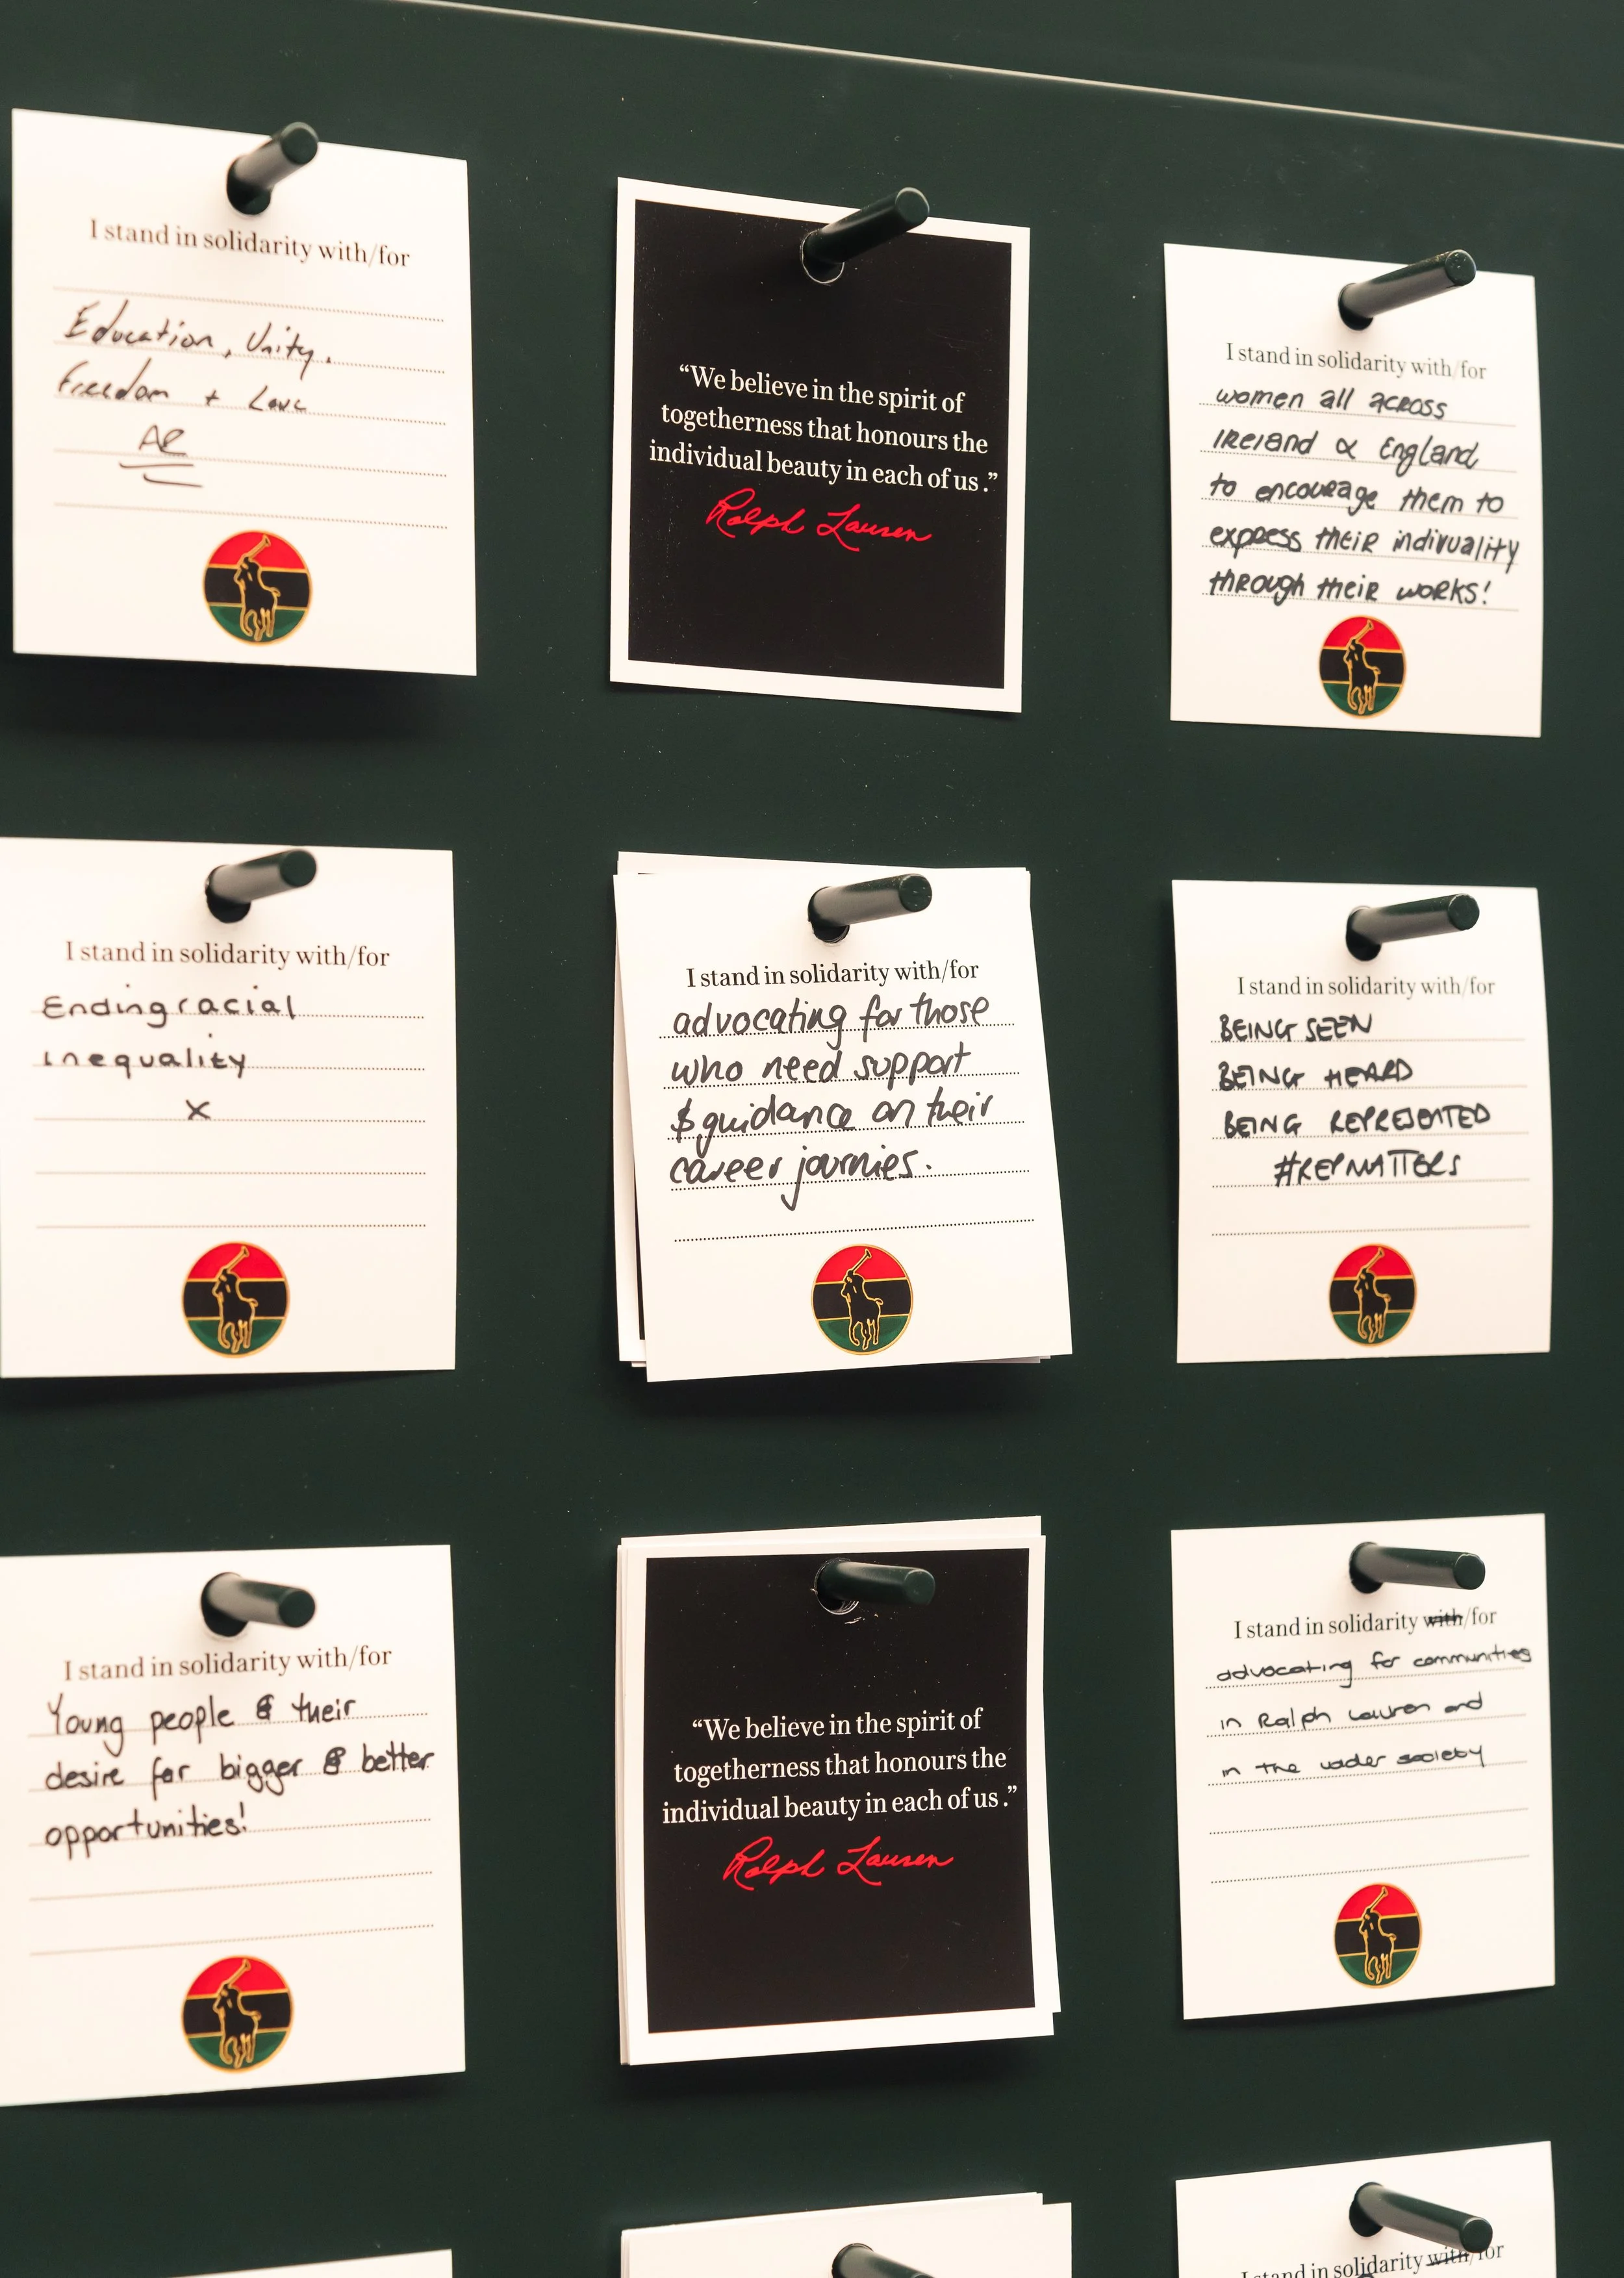 I stand in solidarity with/for
Education, Unity.
Freedom + Love
I stand in solidarity with/for
Ending racial
inequality
x
I stand in solidarity with/for
Young people & their
desire for bigger & better
opportunities!
“We believe in the spirit of
togetherness that honours the
individual beauty in each of us .”
Ralph Lauren
I stand in solidarity with/for
advocating for those
who need support
& guidance on their
career journies.
“We believe in the spirit of
togetherness that honours the
individual beauty in each of us .”
Ralph Lauren
I stand in solidarity with/for
women all across
IReland & England
to encourage them to
express their indivuality
through their works!
I stand in solidarity with/for
BEING SEEN
BEING HEARD
BEING REPRESENTED
#REPMATTERS
I stand in solidarity with/for
advocating for communities
in Ralph Lauren and
in the wider society
I stand in solidarity with/for